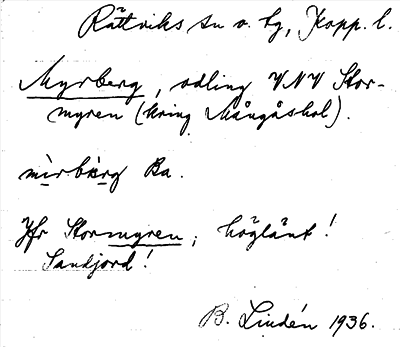 Rättviks sn o. hg, Kopp. l.
Myrberg, odling VNV Stor-
myren (kring Mångåshol).
mìrbærg Ba.
Jfr Stormyren; höglänt!
Sandjord!
B. Lindén 1936.